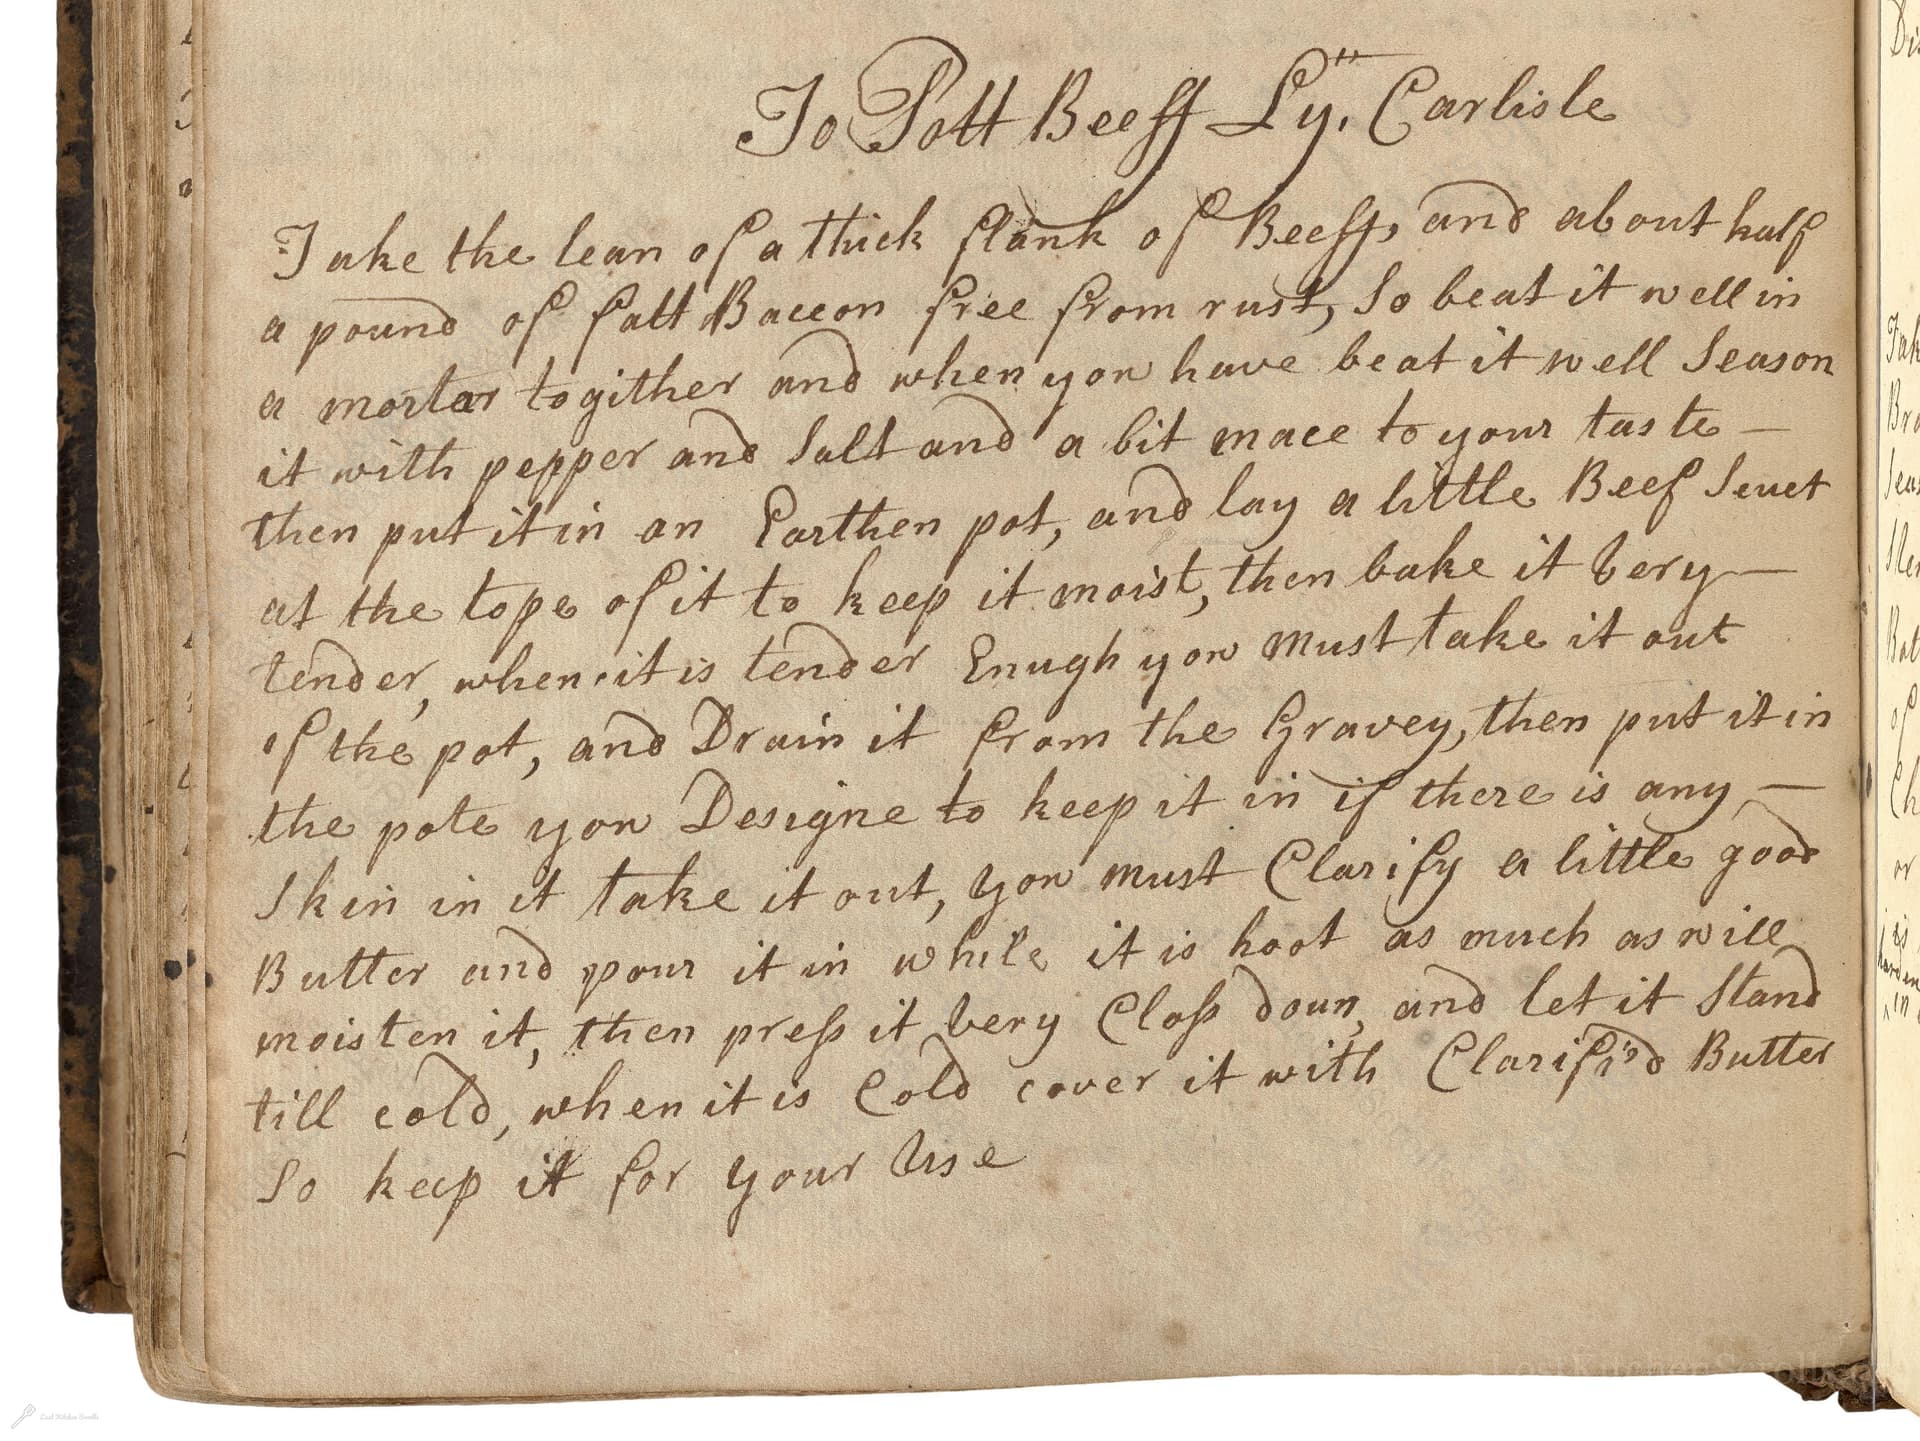 To Pott Beeff Ly. Carlisle
Take the lean of a thick flank of Beeff, and about half
a pound of fatt Baccon free from rust, So beat it well in
a mortar togither and when you have beat it well Season
it with pepper and Salt and a bit mace to your taste —
then put it in an Earthen pot, and lay a little Beef Seuet
at the tope of it to keep it moist, then bake it Very —
tender, when it is tender Enugh you must take it out
of the pot, and Drain it from the Gravey, then put it in
the pote you Designe to keep it in if there is any —
Skin in it take it out, you must Clarify a little good
Butter and pour it in while it is hoot as much as will
moisten it, then preſs it Very Cloſs doun, and let it Stand
till cold, when it is Cold cover it with Clarifi'd Butter
So keep it for your Use
Lost Kitchen Scrolls